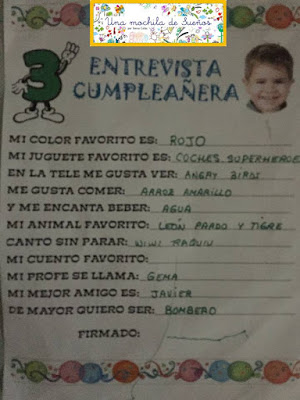 Una mochila de Sueños
3
ENTREVISTA
CUMPLEAÑERA
MI COLOR FAVORITO ES: ROJO
MI JUGUETE FAVORITO ES: COCHES, SUPERHEROE
EN LA TELE ME GUSTA VER: ANGRY BIRDS
ME GUSTA COMER: ARROZ AMARILLO
Y ME ENCANTA BEBER: AGUA
MI ANIMAL FAVORITO: LEÓN PARDO Y TIGRE
CANTO SIN PARAR:
MI CUENTO FAVORITO:
MI PROFE SE LLAMA: GEMA
MI MEJOR AMIGO ES: JAVIER
DE MAYOR QUIERO SER: BOMBERO
FIRMADO: